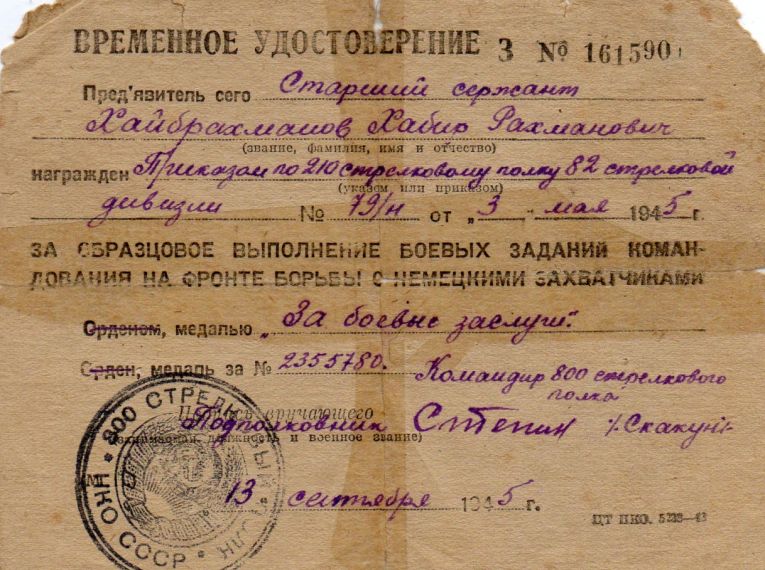 ВРЕМЕННОЕ УДОСТОВЕРЕНИЕ З № 161590
Пред'явитель сего Старший сержант
Хайбрахманов Хабир Рахманович
(звание, фамилия, имя и отчество)
награжден Приказом по 210 стрелковому полку 82 стрелковой
(указом или приказом)
дивизии № 79/н от „3„ мая 1945 г.
ЗА ОБРАЗЦОВОЕ ВЫПОЛНЕНИЕ БОЕВЫХ ЗАДАНИЙ КОМАН-
ДОВАНИЯ НА ФРОНТЕ БОРЬБЫ С НЕМЕЦКИМИ ЗАХВАТЧИКАМИ
Орденом, медалью „За боевые заслуги".
Орден, медаль за № 2355780.
Командир 800 стрелкового
полка
Подпись вручающего
Подполковник /Скакун/
должность и военное звание)
13 сентября 1945 г.
800 СТРЕЛКОВЫЙ ПОЛК
НКО СССР
М
ЦТ НКО.